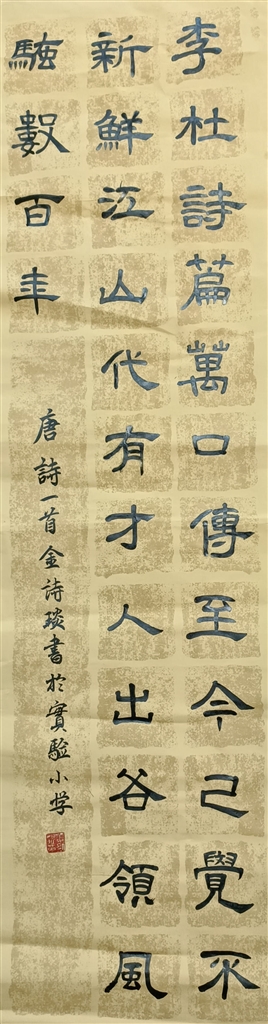 李杜詩篇萬口傳至今已覺不
新鮮江山代有才人出谷領風
騷數百年
唐詩一首金詩琰書於實驗小学